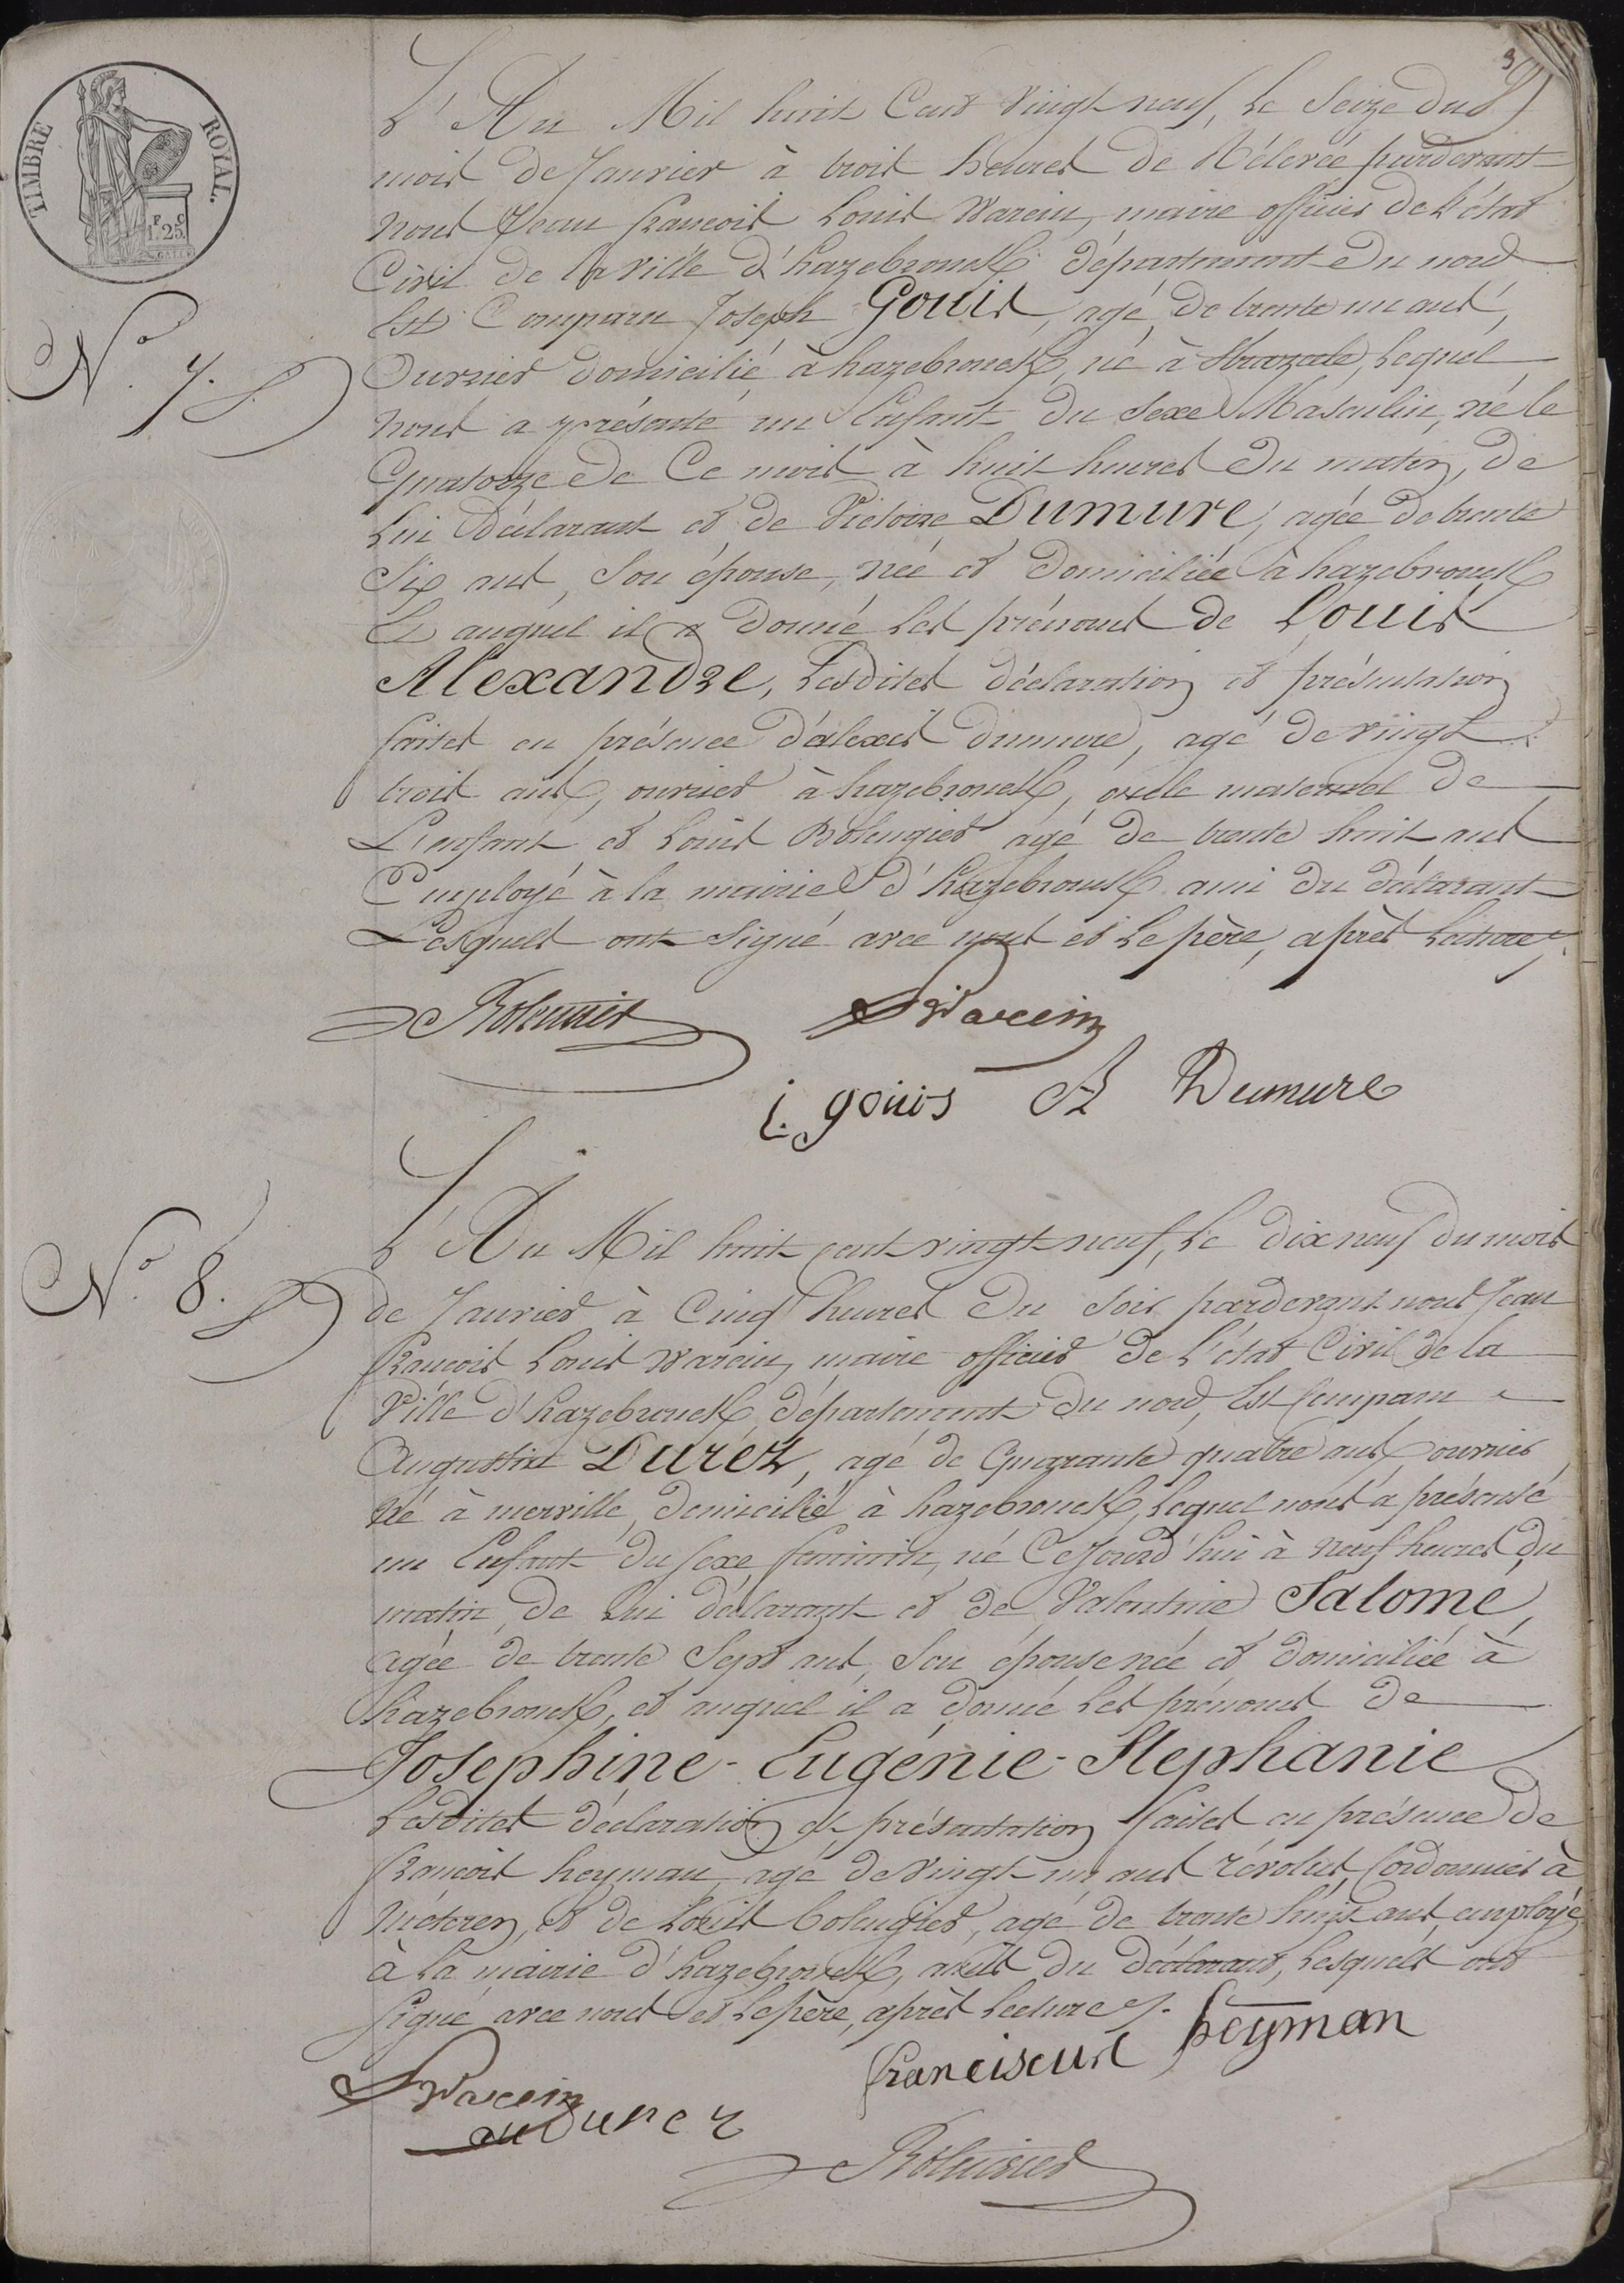 3
TIMBRE ROYAL.
F. C.
1. 25.
N.° 7.
L'An Mil huit Cent Vingt neuf, le Seize du
mois de Janvier à trois heures de Rélevée pardevant
nous Jean françois Louis Warein, maire officier de l'état
Civil de la Ville d'hazebrouck département du nord
Est Comparu Joseph Gouis, agé de trente un ans,
Ouvrier domicilié à hazebrouck, né à Strazeele, lequel
nous a présenté un Enfant du Sexe Masculin, né le
Quatorze de Ce mois à huit heures du matin, de
lui déclarant et de Victoire Dumure, agée de trente
Six ans, Son épouse, née et domiciliée à hazebrouck
Et auquel il a donné les prénoms de Louis
Alexandre, Lesdites déclaration et présentation
faites en présence d'alexis dumure, agé de Vingt
trois ans, ouvrier à hazebrouck, oncle maternel de
L'enfant et Louis Bolengier agé de trente huit ans
Employé à la mairie d'hazebrouck ami du déclarant
Lesquels ont Signé avec nous et le père, après lecture.
Bolengier Warein
j. gouis A Dumure
N.° 8.
L'An Mil huit cent vingt neuf, le dix neuf du mois
de Janvier à Cinq heures du Soir pardevant nous Jean
françois Louis Warein, maire officier de l'état Civil de la
Ville d'hazebrouck département du nord, Est Comparu
Augustin Duréz, agé de Quarante quatre ans, ouvrier
né à merville, domicilié à hazebrouck, lequel nous a présenté
un Enfant du sexe feminin, né Cejourd'hui à neuf heures du
matin, de lui déclarant et de Valentine Salomé,
agée de trente Sept ans, Son épouse née et domiciliée à
hazebrouck, et auquel il a donné les prénoms de
Josephine-Eugénie-Stephanie
Lesdites déclaration et présentation faites en présence de
françois heyman, agé de Vingt un ans révolus, Cordonnier à
Méteren, et de Louis bolengier, agé de trente huit ans, employé
à la mairie d'hazebrouck, amis du déclarant, lesquels ont
Signé avec nous et le père, après lecture.
franciscus heyman
Warein
au Durez
Bolengier